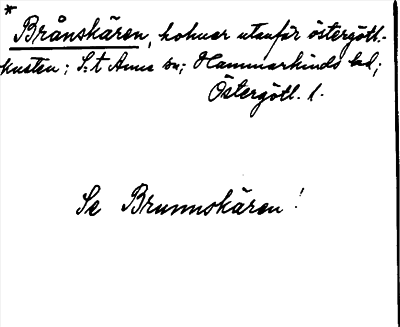 *
Brånskären, holmar utanför östergötl.-
kusten; S:t Anna sn; Hammarkinds hd;
Östergötl. l.
Se Brunnskären!